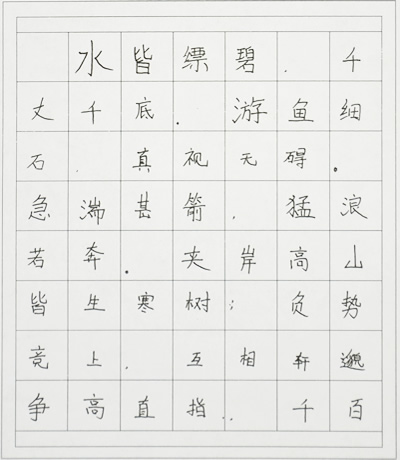 水皆缥碧.千
丈千底.游鱼细
石.真视无碍。
急湍甚箭.猛浪
若奔.夹岸高山
皆生寒树;负势
竞上.互相轩邈
争高直指..千百